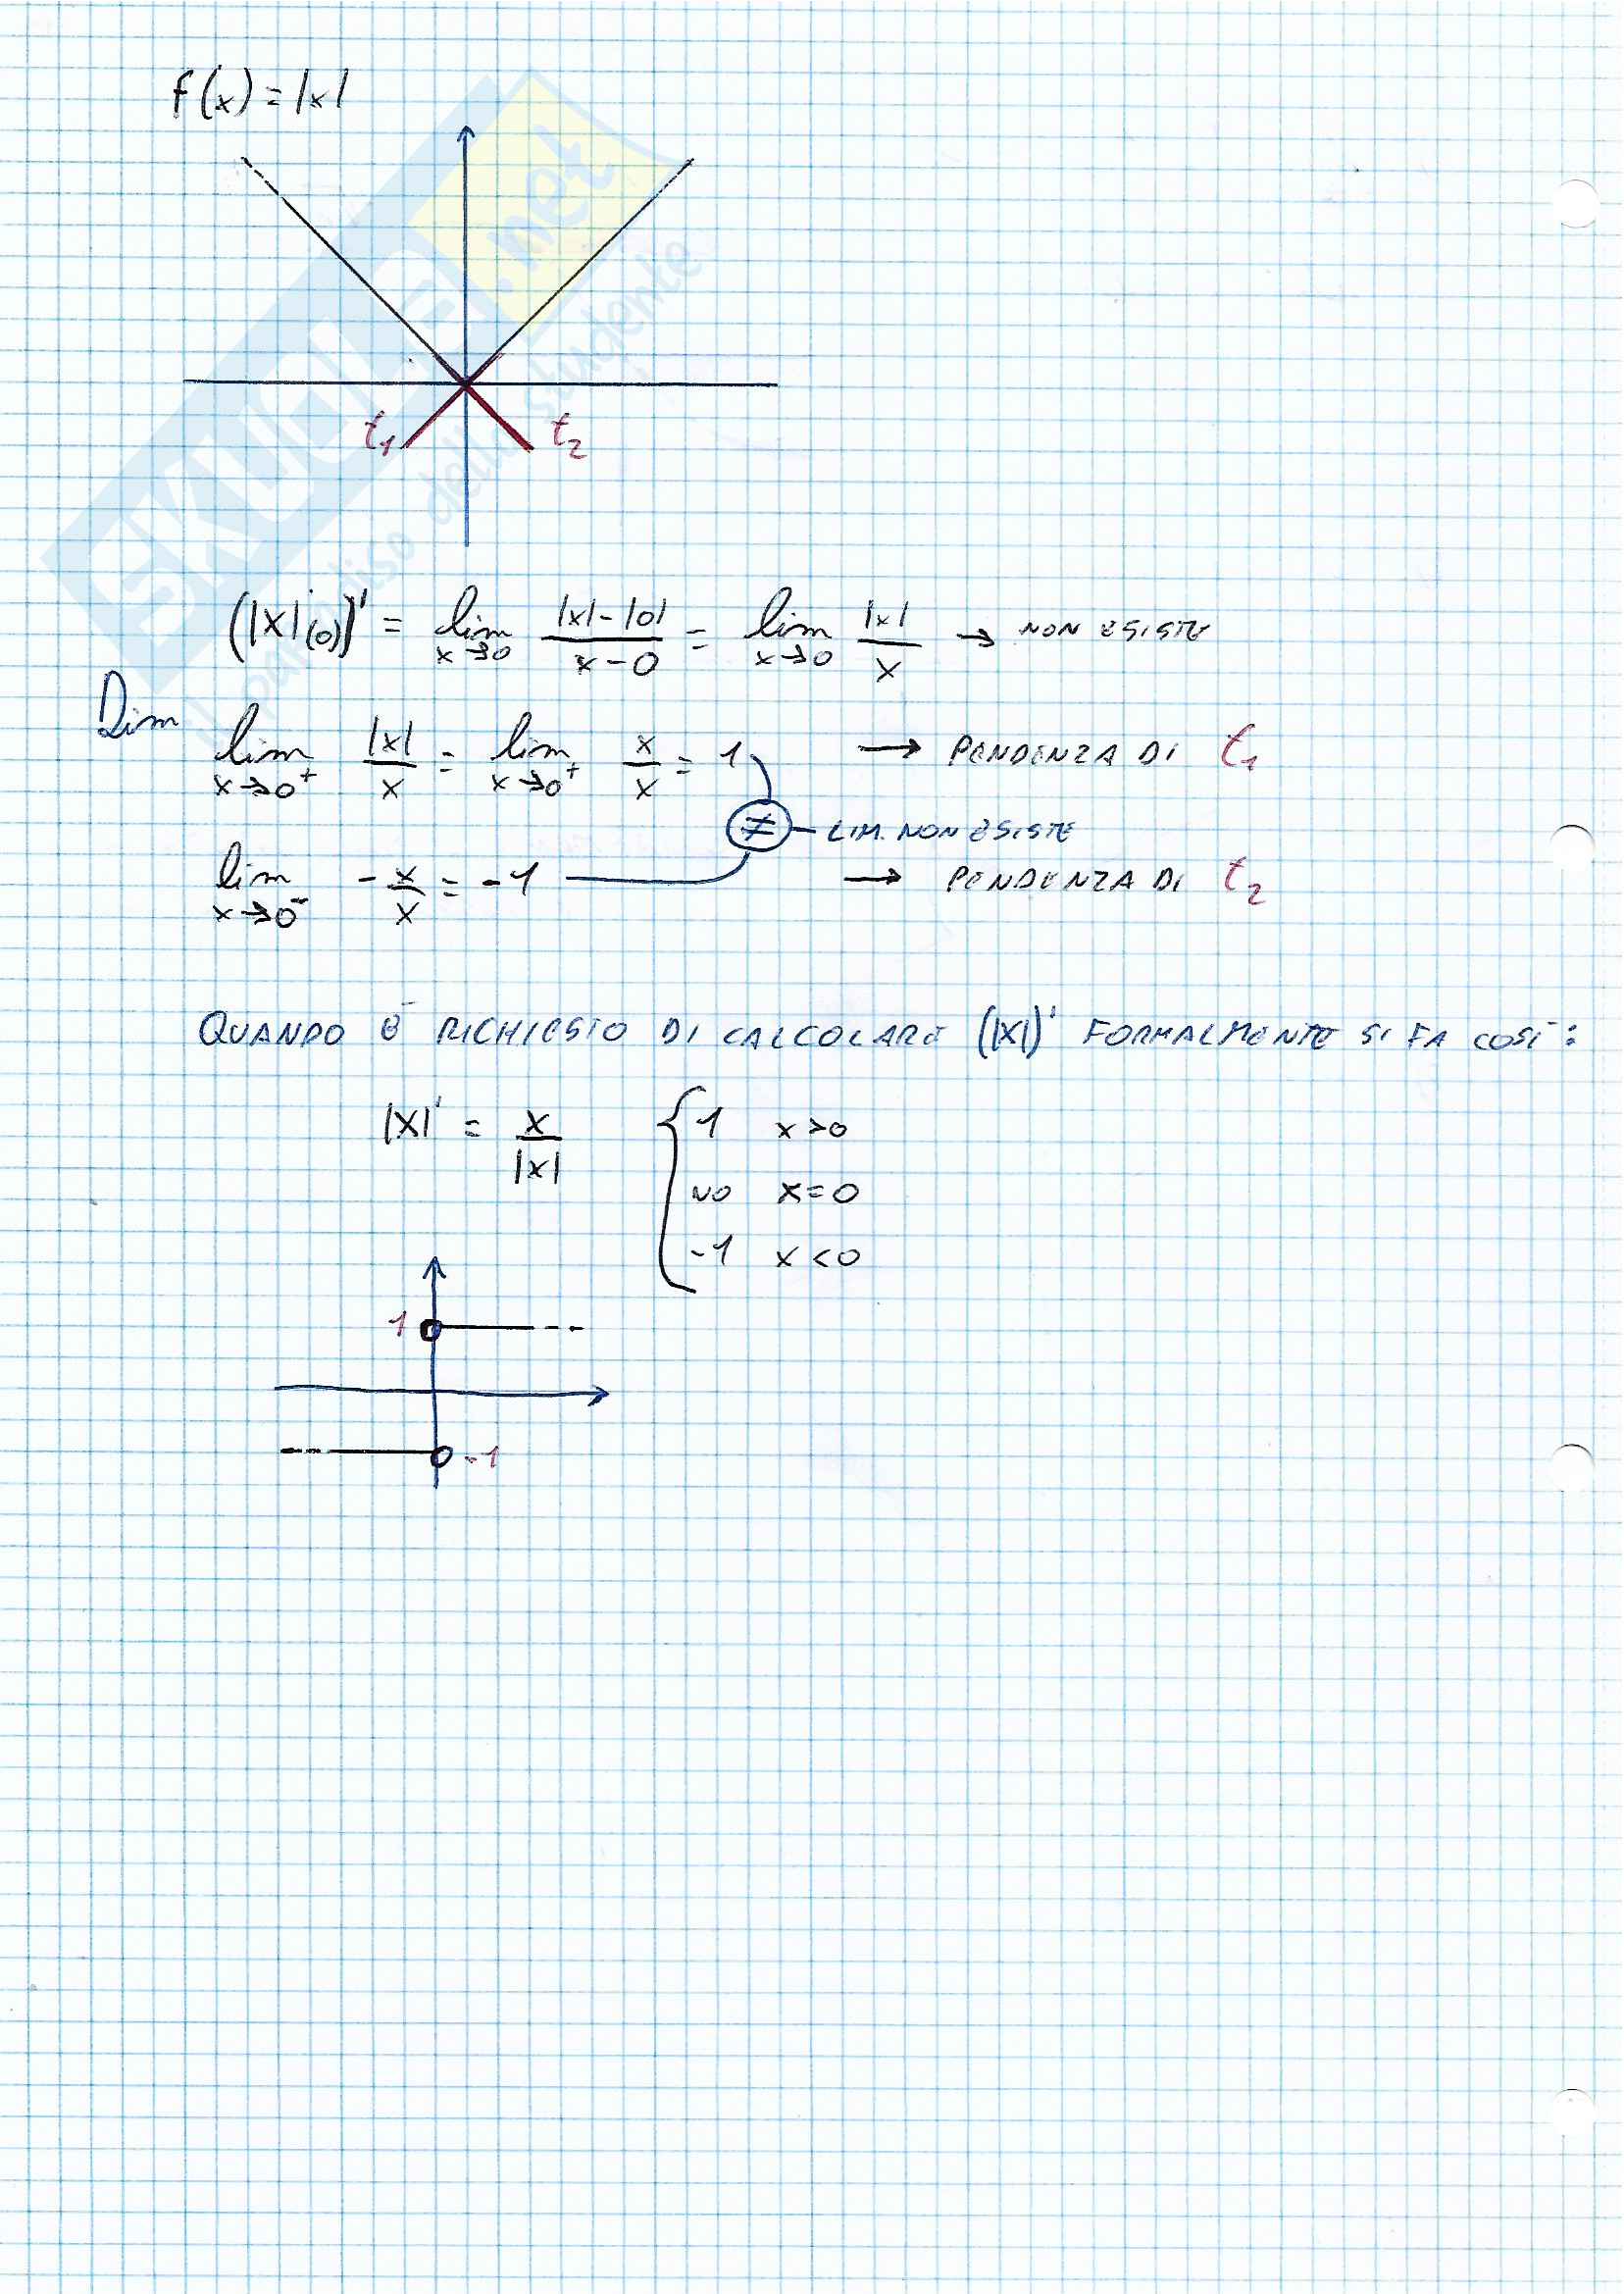 f(x) = |x|
SKUOLA.net
il paradiso dello studente
t₁ t₂
(|x|(0))' = lim x→0 |x| - |0| / x - 0 = lim x→0 |x| / x → NON ESISTE
Dim
lim x→0⁺ |x| / x = lim x→0⁺ x / x = 1 → PENDENZA DI t₁
≠ — LIM. NON ESISTE
lim x→0⁻ - x / x = -1 → PENDENZA DI t₂
QUANDO È RICHIESTO DI CALCOLARE (|x|)' FORMALMENTE SI FA COSÌ:
|x|' = x / |x| { 1 x>0
NO x=0
-1 x<0
1
-1